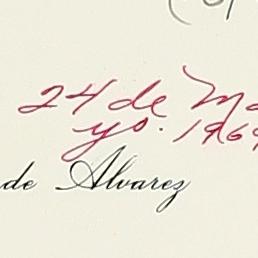 24 de Ma
yo. 1969
de Alvarez